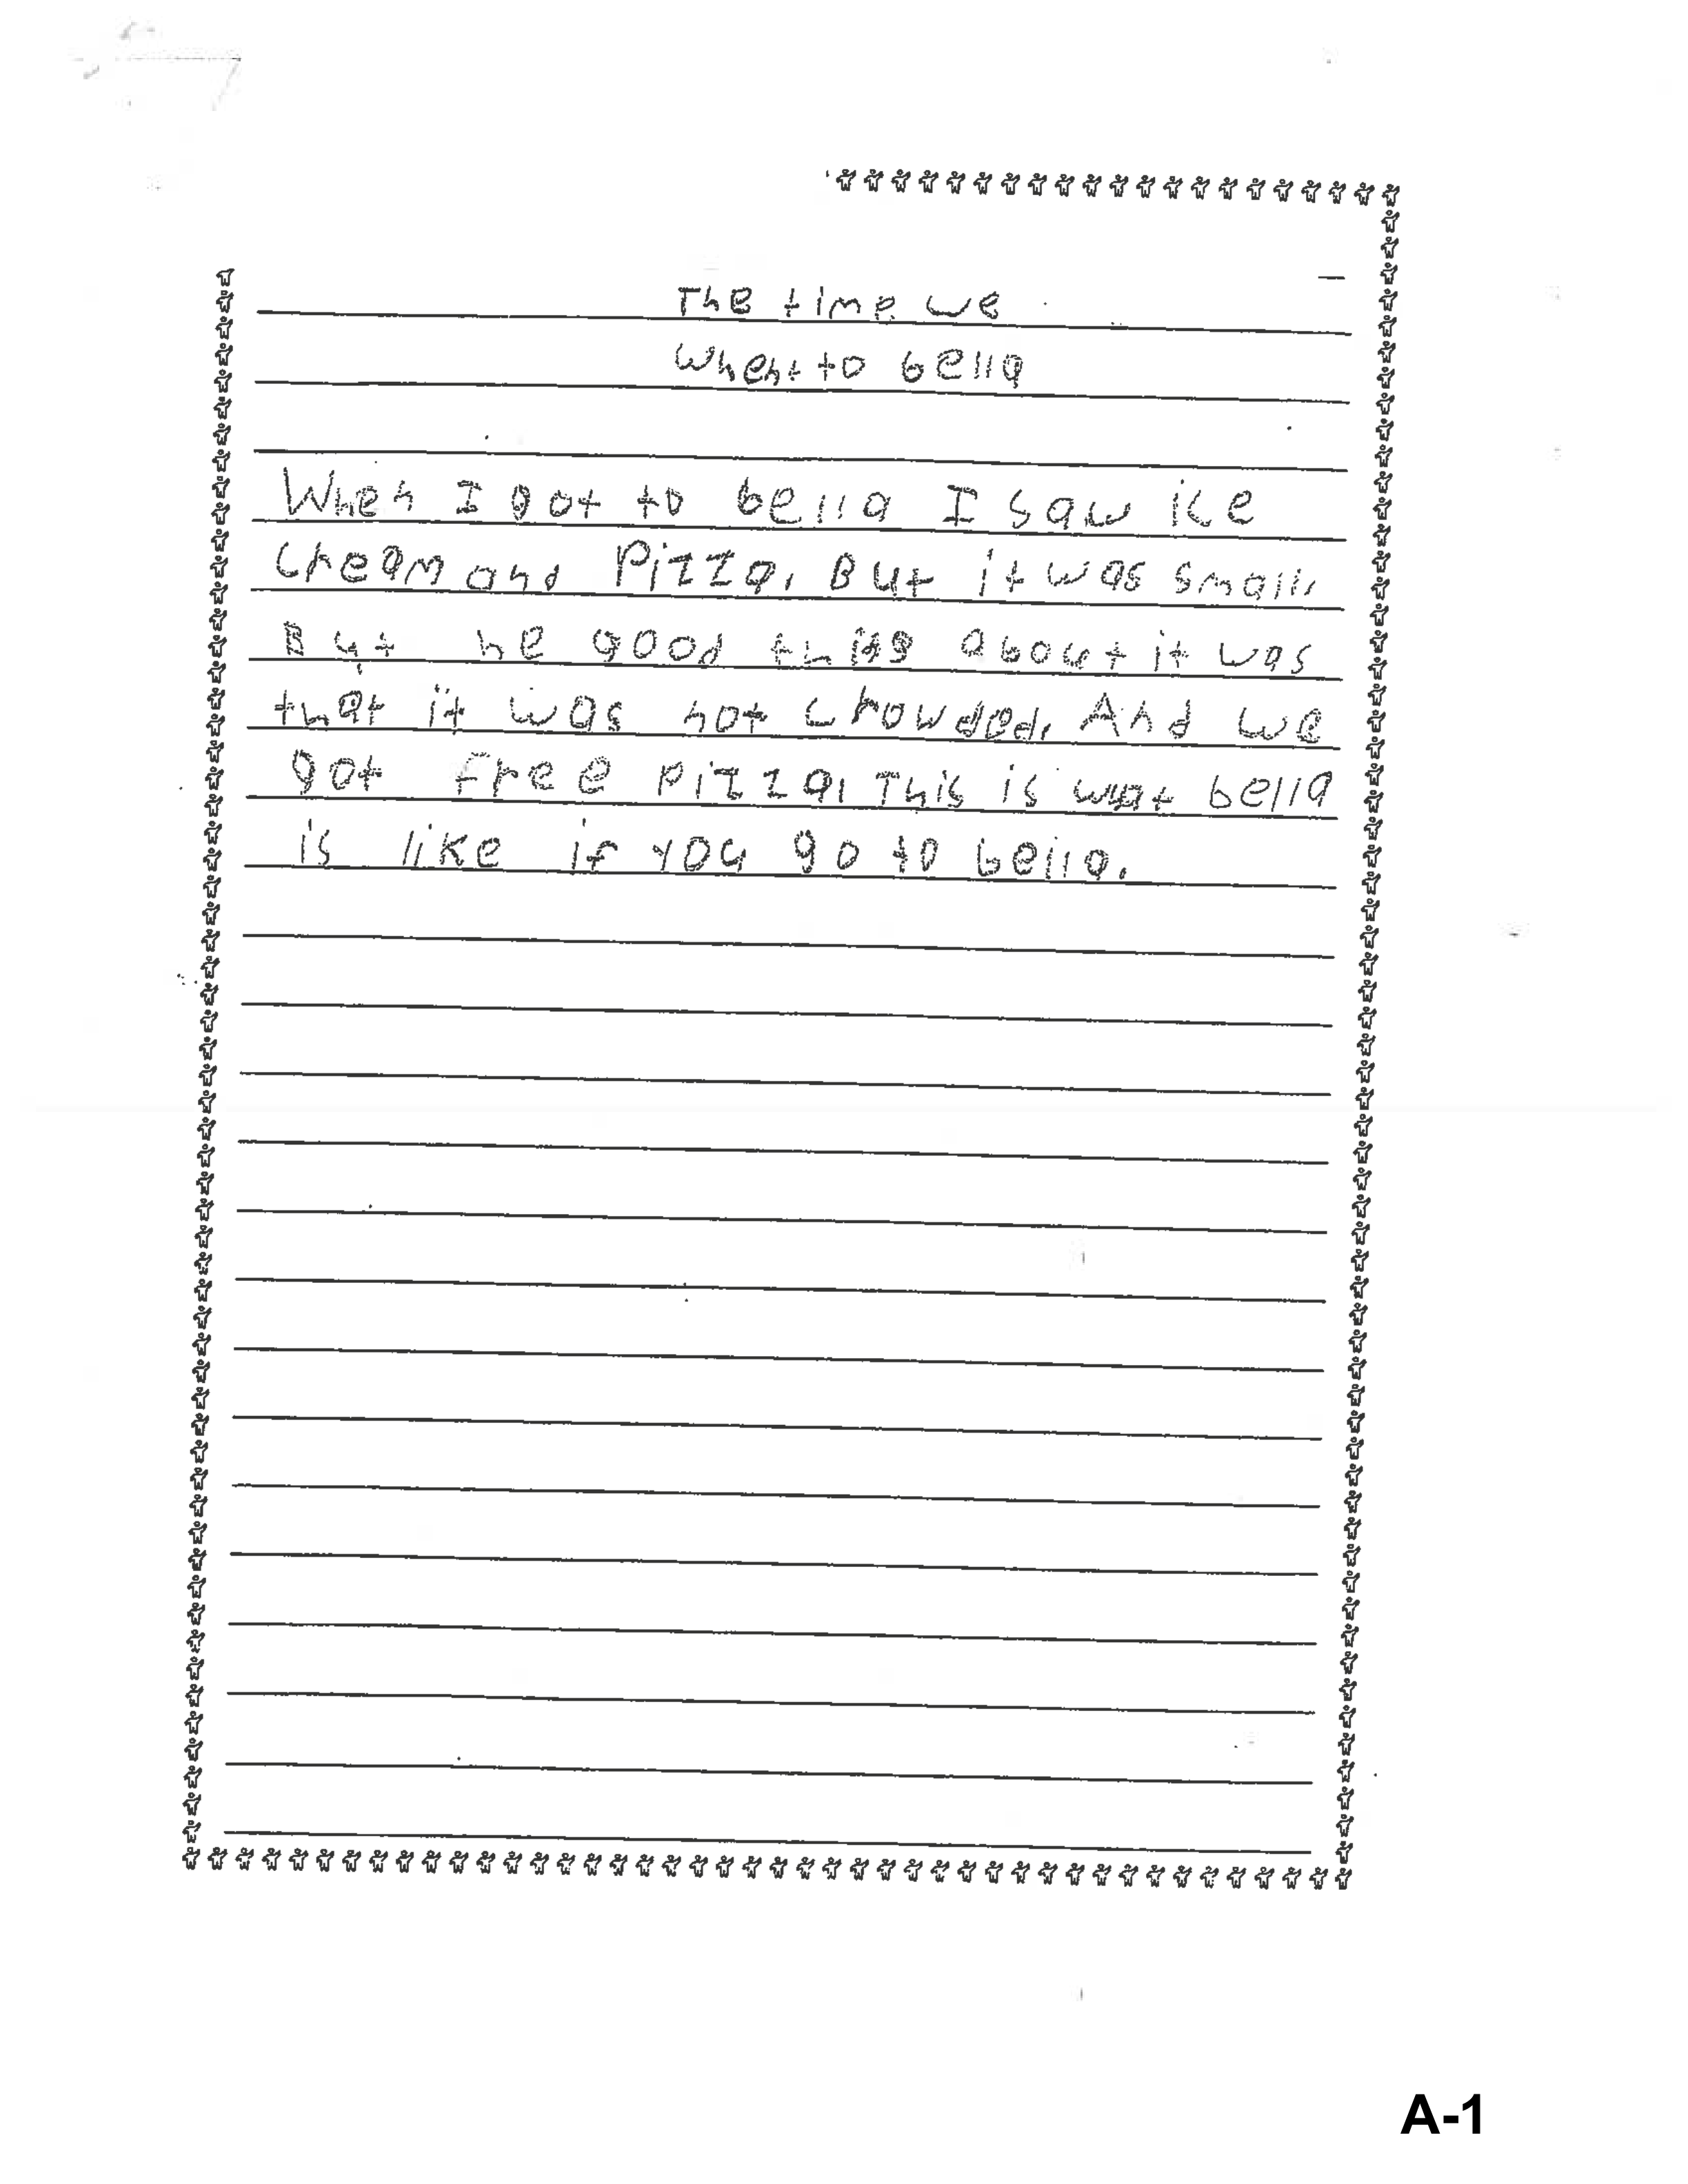 The time we
when t to bella
When I got to bella I saw ice
cream and Pizza. But it was small.
But he good thing about it was
that it was not crowded. And we
got free pizza. This is what bella
is like if you go to bella.
A-1